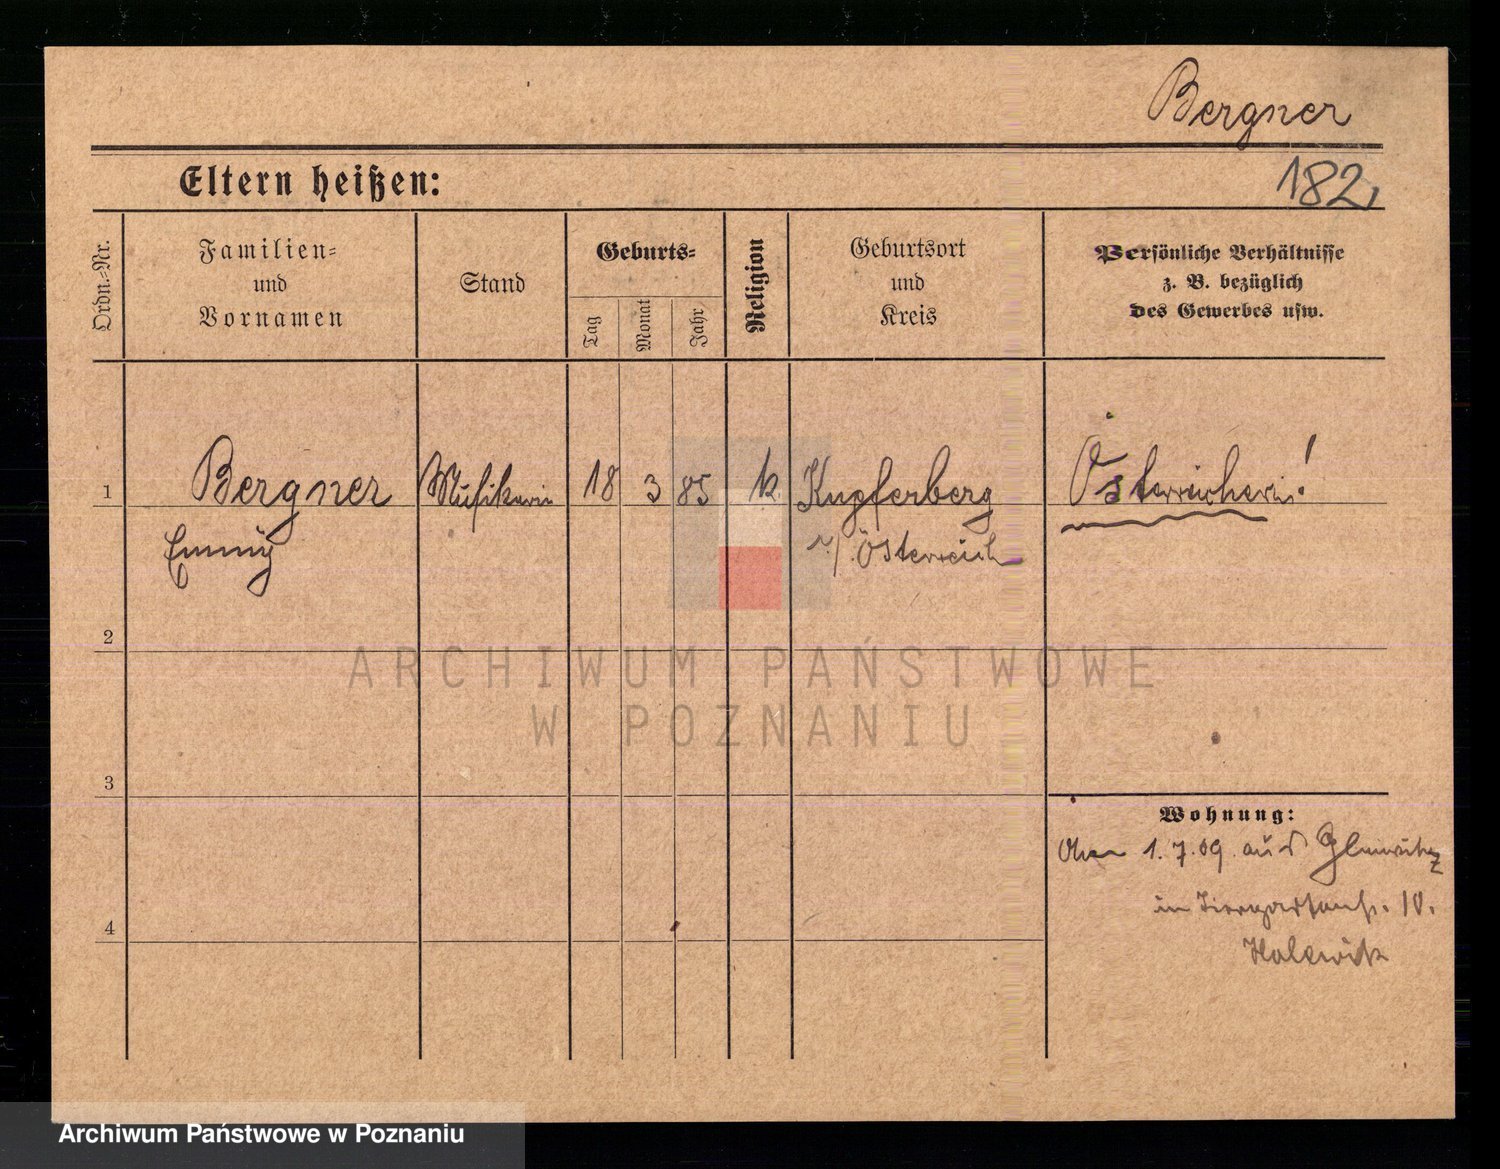 Bergner
182,
Eltern heißen:
Ordn.-Nr.
Familien-
und
Vornamen
Stand
Geburts-
Tag
Monat
Jahr
Religion
Geburtsort
und
Kreis
Persönliche Verhältnisse
z. B. bezüglich
des Gewerbes usw.
1
Bergner
Emmy
Musikerin
18
3
85
k.
Kupferberg
Österreich
Österreicherin!
2
3
4
Wohnung:
1.7.09. aus Gleiwitz
in Tiergartenstr. 10.
ARCHIWUM PAŃSTWOWE
W POZNANIU
Archiwum Państwowe w Poznaniu